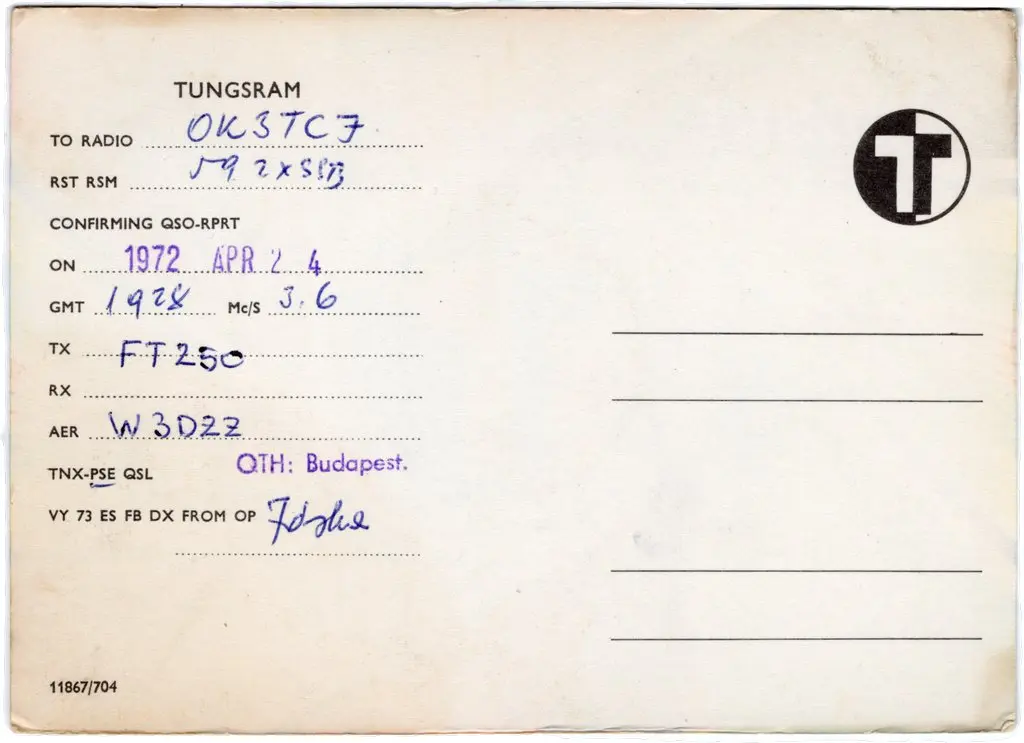 TUNGSRAM
TO RADIO OK3TCZ
RST RSM 59 2xSSB
CONFIRMING QSO-RPRT
ON 1972 APR 2 4
GMT 1928 Mc/S 3.6
TX FT250
RX
AER W3DZZ
QTH: Budapest.
TNX-PSE QSL
VY 73 ES FB DX FROM OP
11867/704
T